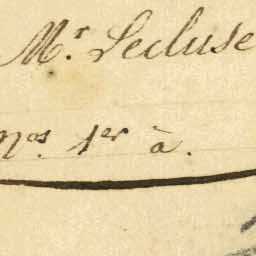 Mr. Lecluse
Nos. 1er à.